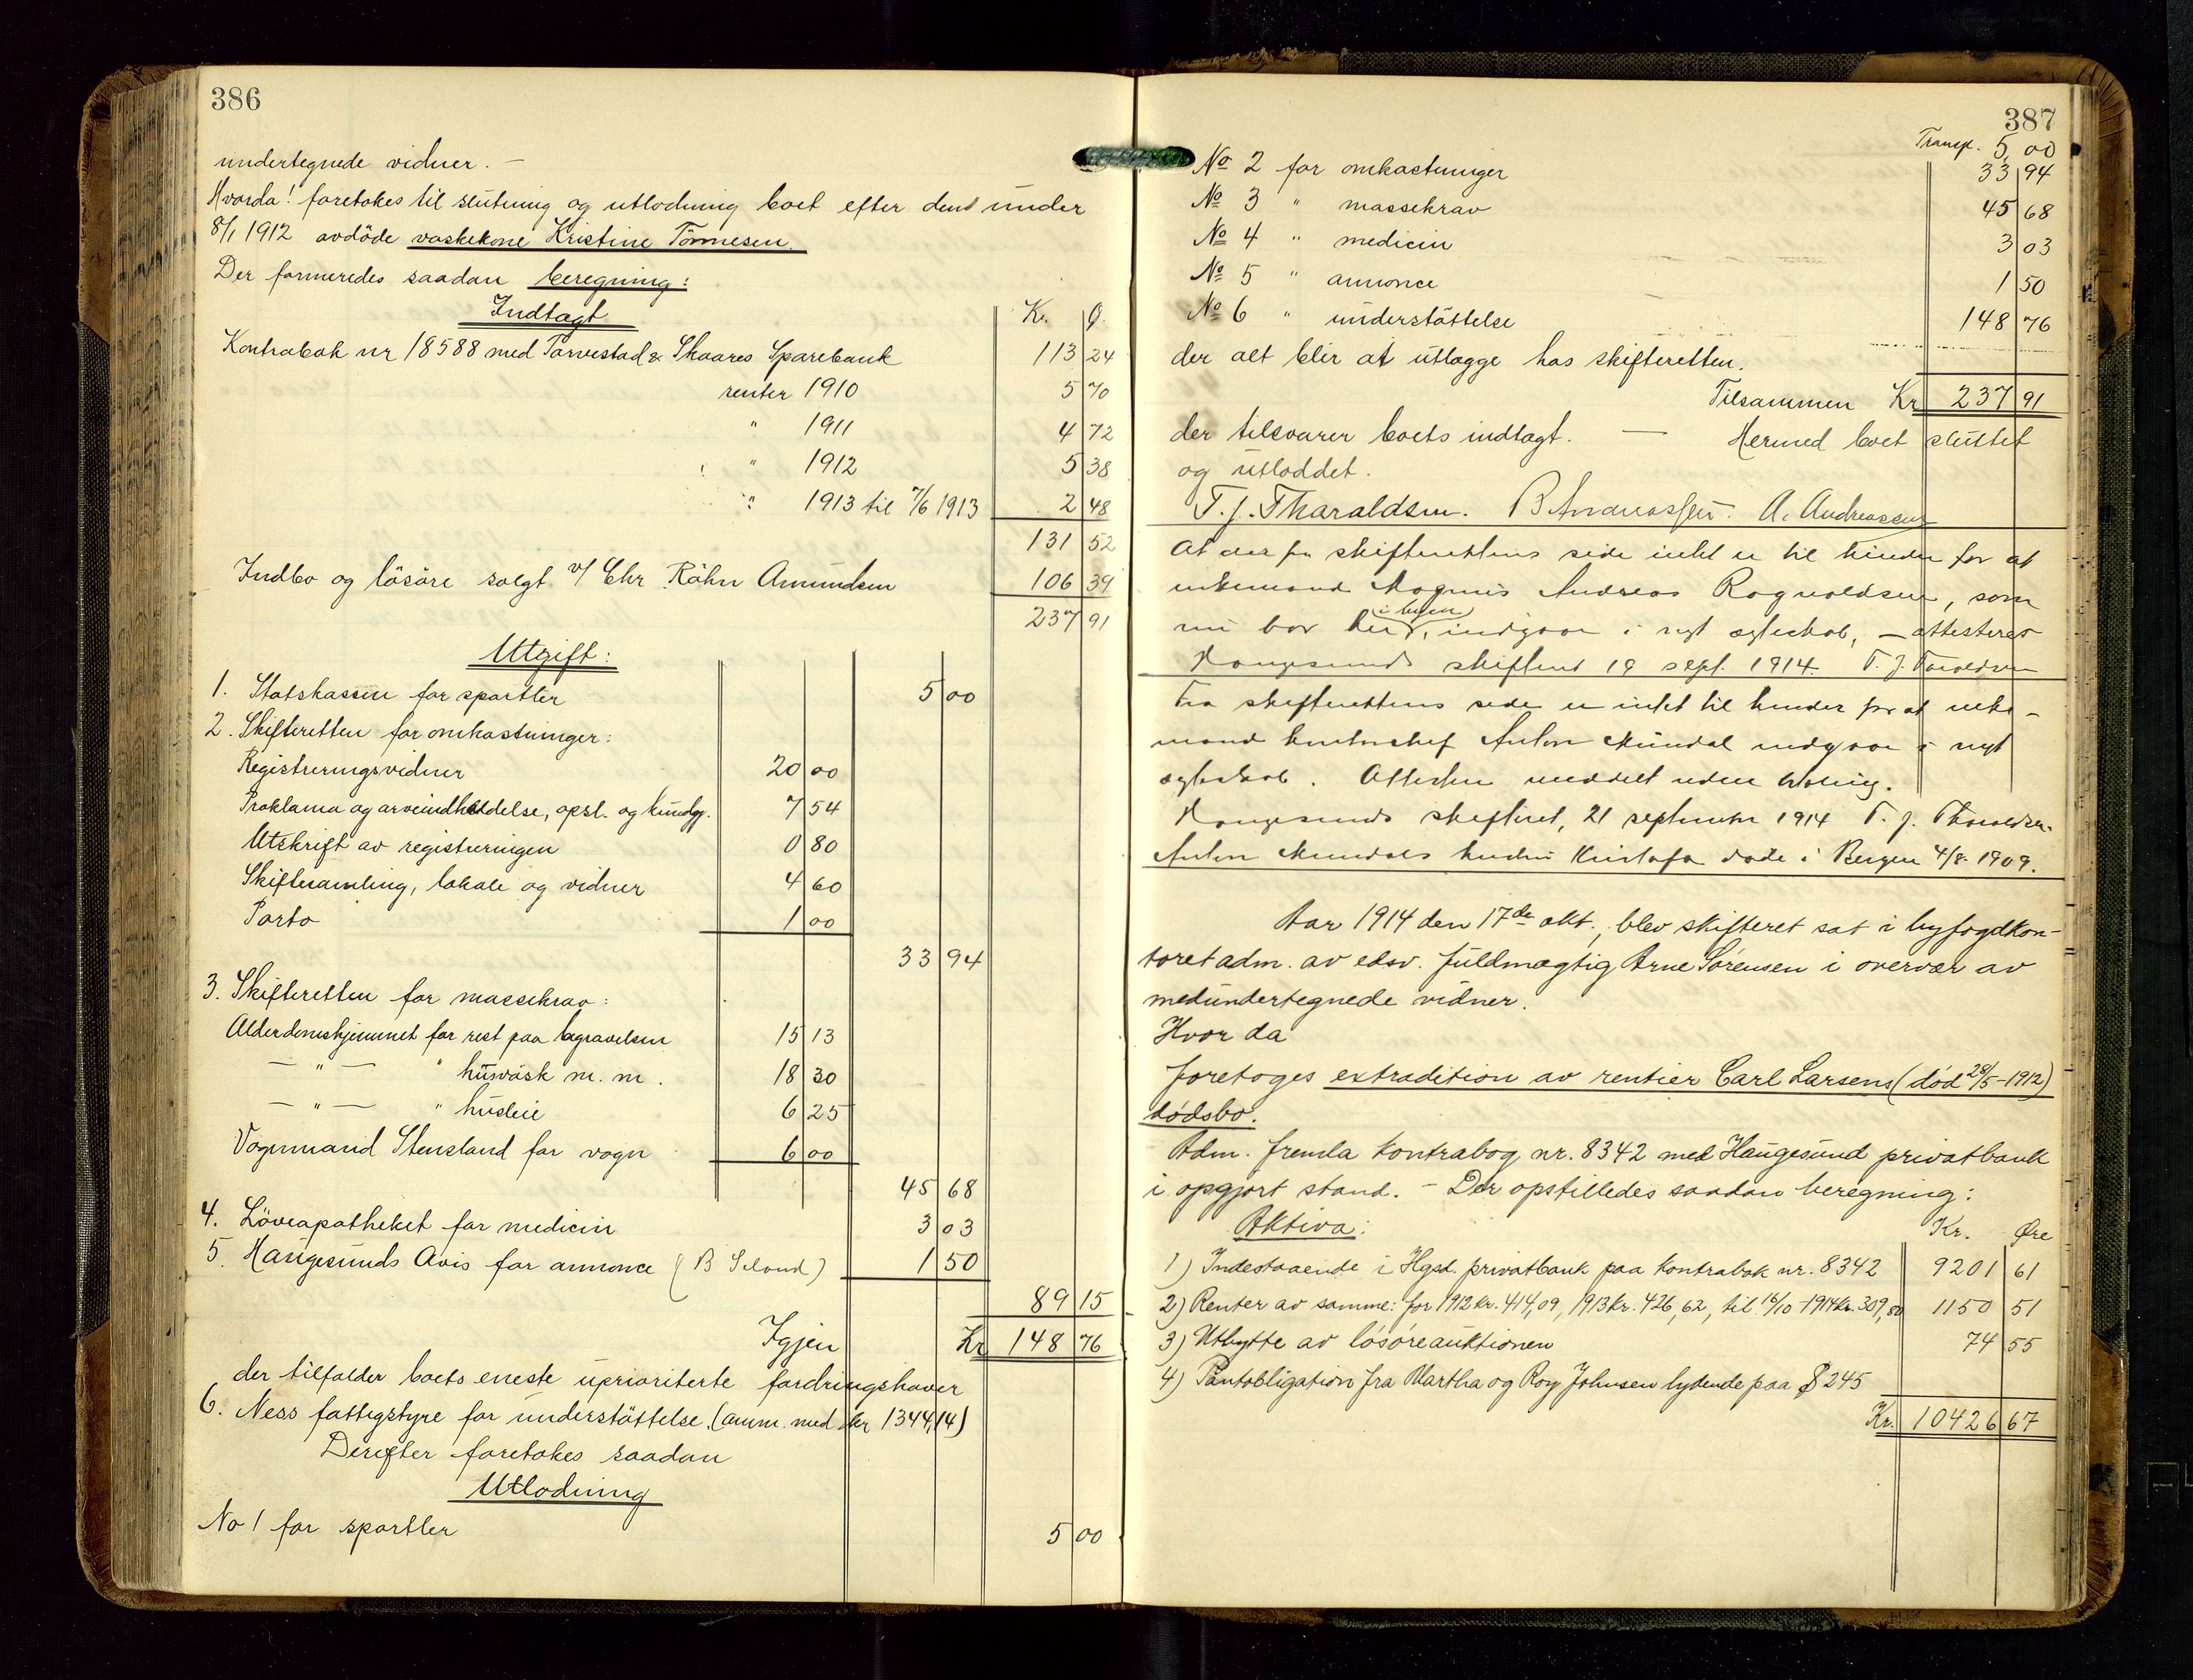 386
undertegnede vidner. —
Hvorda! foretokes til slutning og utlodning boet efter dend under
8/1 1912 avdöde vaskekone Kristine Tönnesen.
Der formeredes saadan beregning:
Indtægt Kr. Ö.
Kontrabok nr 18588 med Torvestad & Skaares Sparebank 113 24
renter 1910 5 70
" 1911 4 72
" 1912 5 38
" 1913 til 7/6 1913 2 48
131 52
Indbo og lösöre solgt v/ Chr. Röhn Amundsen 106 39
237 91
Utgift:
1. Statskassen for sportler 5 00
2. Skifteretten for omkostninger:
Registreringsvidner 20 00
Proklama og arveindkaldelse, opsl. og kundgj. 7 54
Utskrift av registreringen 0 80
Skiftesamling, lokale og vidner 4 60
Porto 1 00
33 94
3. Skifteretten for massekrav:
Alderdomshjemmet for rest paa begravelsen 15 13
— " — " husvask m. m. 18 30
— " — " husleie 6 25
Vognmand Stensland for vogn 6 00
45 68
4. Löveapotheket for medicin 3 03
5. Haugesunds Avis for annonce (B Seland) 1 50
89 15
Igjen Kr 148 76
der tilfalder boets eneste uprioriterte fordringshaver
6. Ness fattigstyre for understöttelse. (anm. med kr 1344,14)
Derefter foretokes saadan
Utlodning
No 1 for sportler 5 00
387
Transp. 5,00
No 2 for omkostninger 33 94
No 3 " massekrav 45 68
No 4 " medicin 3 03
No 5 " annonce 1 50
No 6 " understöttelse 148 76
der alt blir at utlægge hos skifteretten.
Tilsammen Kr 237 91
der tilsvarer boets indtægt. — Hermed boet sluttet
og utloddet.
T. J. Tharaldsen. B Andreassen. A. Andreassen
At der fra skifterettens side intet er til hinder for at
enkemand Magnus Andreas Ragnvaldsen, som
nu bor her (i byen), indgaar i nyt egteskab, — attesteres
Haugesunds skifteret 19 sept. 1914. T. J. Tharaldsen
Fra skifterettens side er intet til hinder for at enke-
mand kontorchef Anton Mundal indgaar i nyt
egteskab. Attesten meddelt uden betaling.
Haugesunds skifteret, 21 september 1914 T. J. Tharaldsen.
Anton Mundals hustru Kristofa døde i Bergen 4/8 1909.
Aar 1914 den 17de okt., blev skifteret sat i byfogdkon-
toret adm. av edsv. fuldmægtig Arne Sørensen i overvær av
medundertegnede vidner.
Hvor da
foretoges extradition av rentier Carl Larsens (død 28/5-1912)
dødsbo.
Adm. fremla kontrabog nr. 8342 med Haugesund privatbank
i opgjort stand. – Der opstilledes saadan beregning:
Aktiva: Kr. Øre
1) Indestaaende i Hgsd. privatbank paa kontrabok nr. 8342 9201 61
2) Renter av samme: for 1912 kr. 414,09, 1913 kr. 426,62, til 16/10-1914 kr. 309,80 1150 51
3) Utbytte av løsøreauktionen 74 55
4) Pantobligation fra Martha og Roy Johnsen lydende paa $ 245
Kr. 10426 67